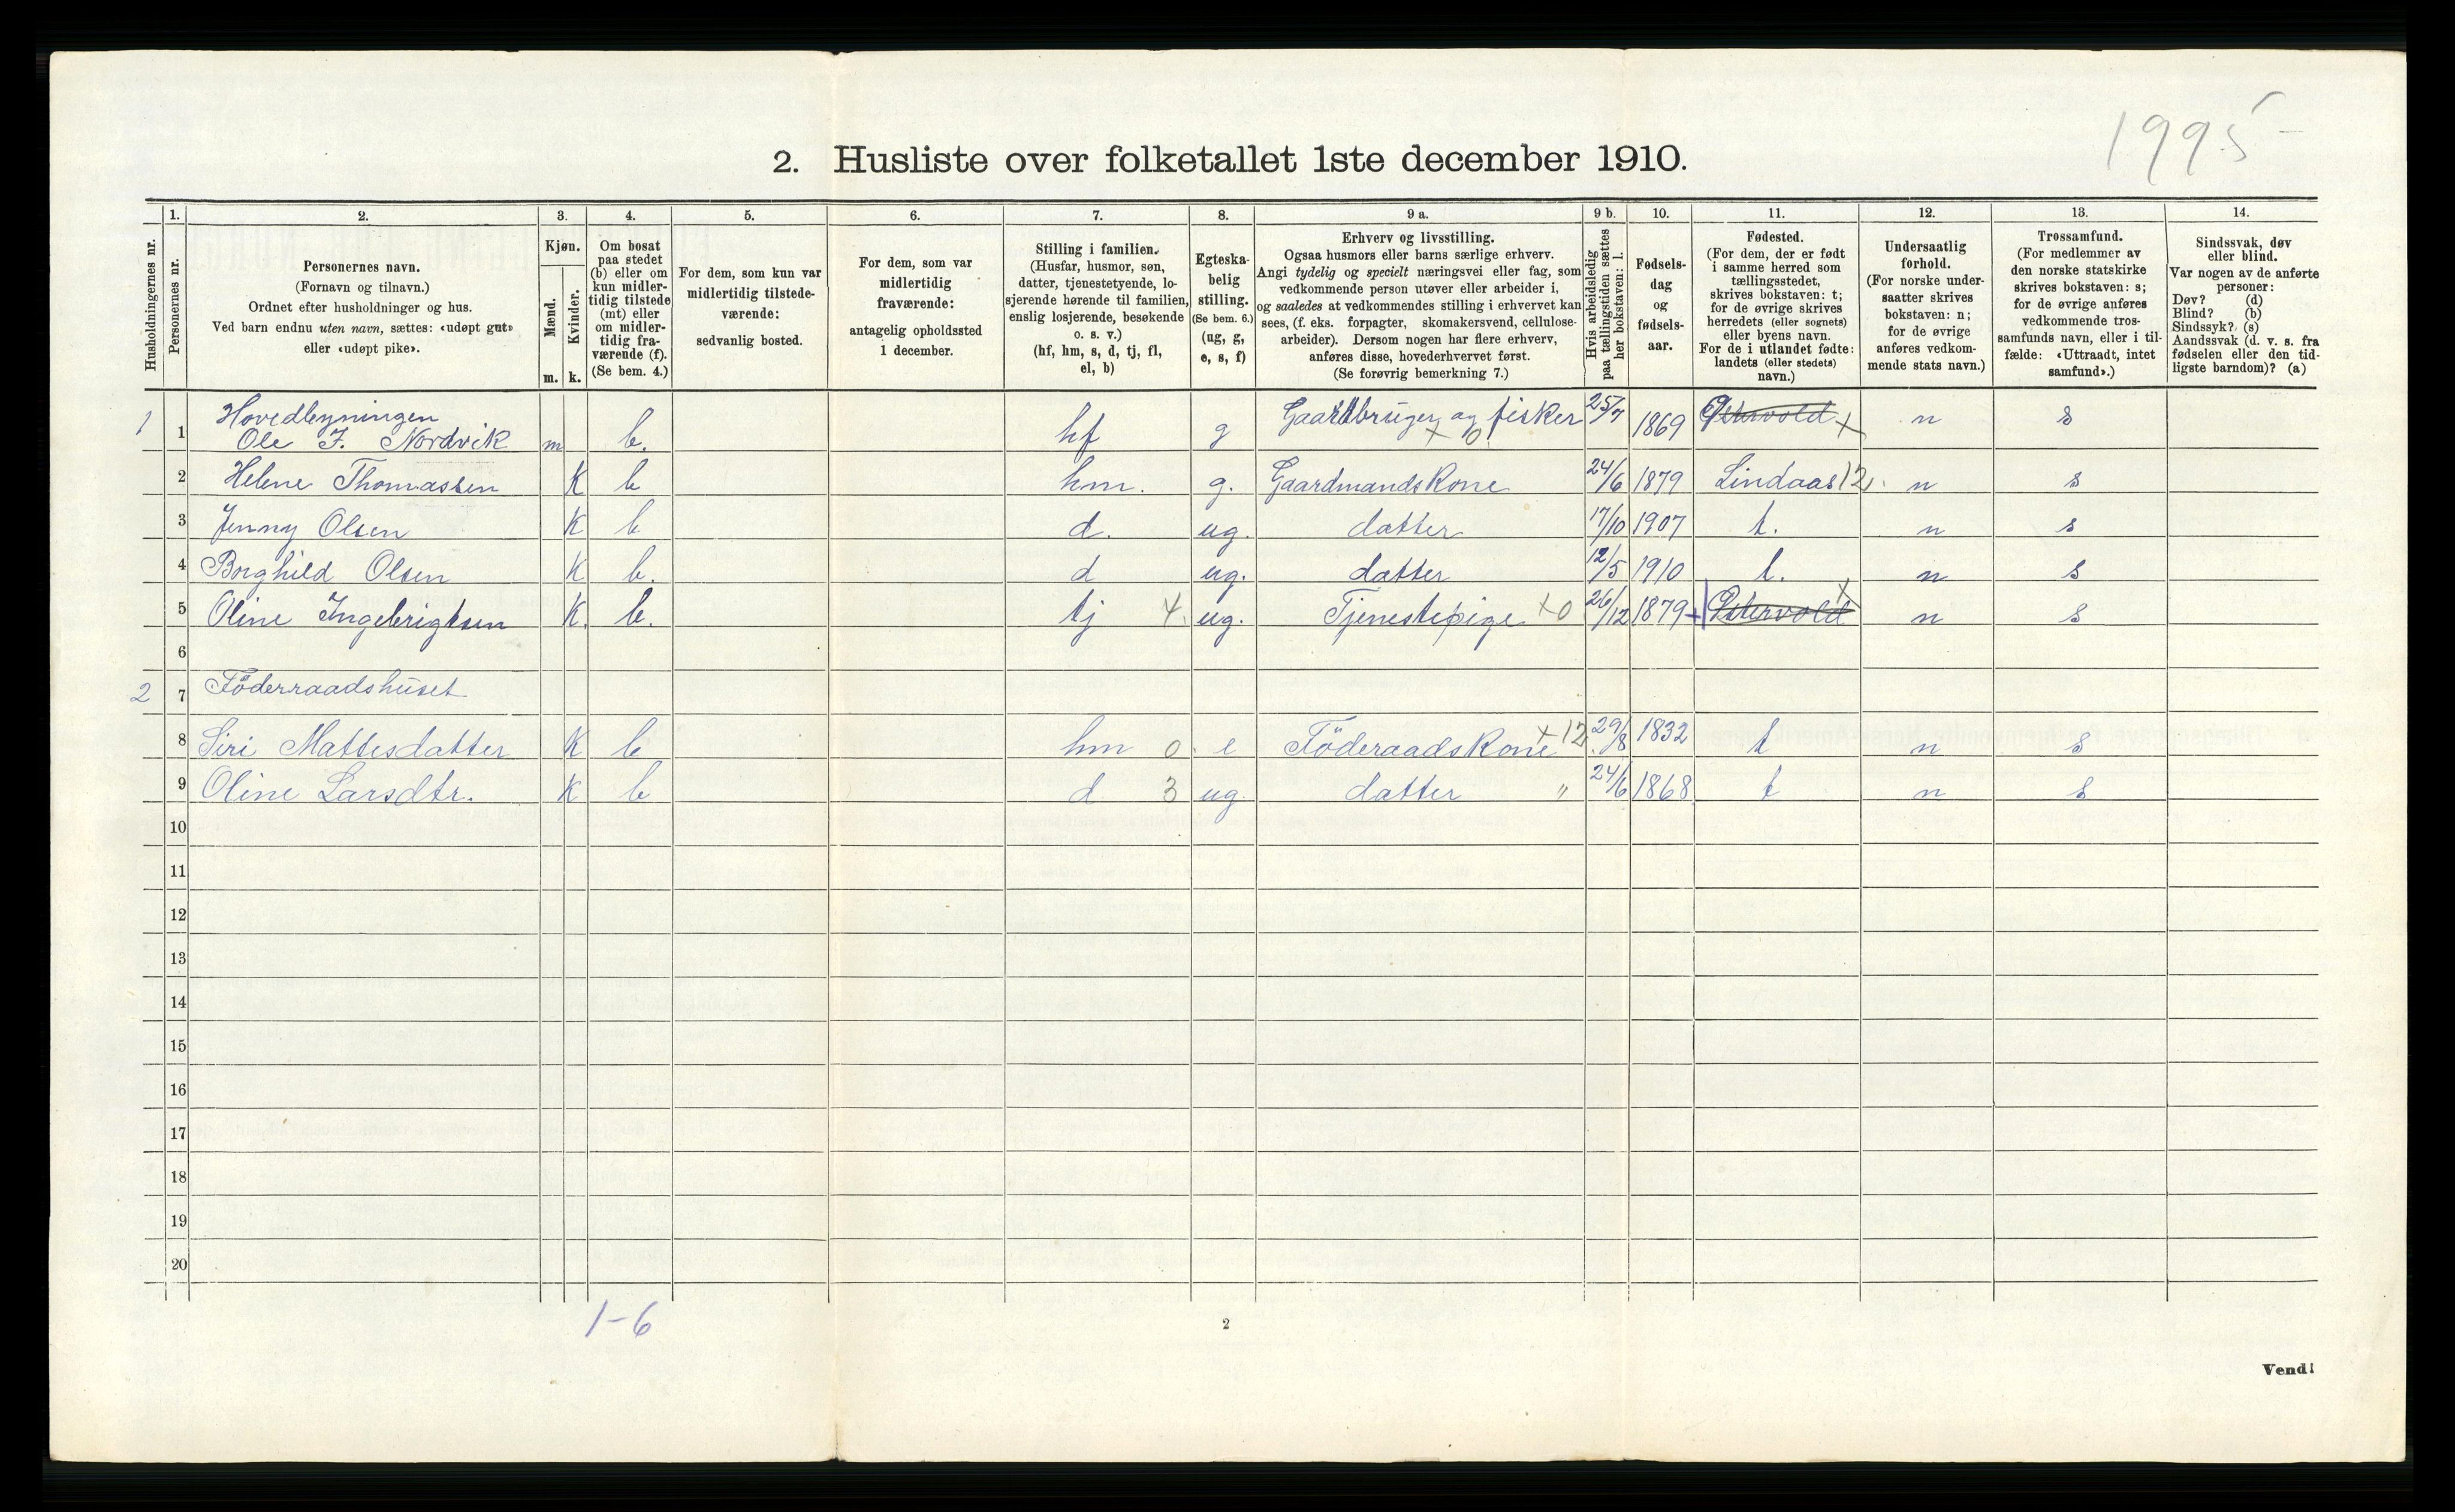 1995
2. Husliste over folketallet 1ste december 1910.
Husholdningernes nr.
1.
Personernes nr.
2.
Personernes navn.
(Fornavn og tilnavn.)
Ordnet efter husholdninger og hus.
Ved barn endnu uten navn, sættes: «udøpt gut»
eller «udøpt pike».
3.
Kjøn.
Mænd.
Kvinder.
m. k.
4.
Om bosat
paa stedet
(b) eller om
kun midler-
tidig tilstede
(mt) eller
om midler-
tidig fra-
værende (f).
(Se bem. 4.)
5.
For dem, som kun var
midlertidig tilstede-
værende:
sedvanlig bosted.
6.
For dem, som var
midlertidig
fraværende:
antagelig opholdssted
1 december.
7.
Stilling i familien.
(Husfar, husmor, søn,
datter, tjenestetyende, lo-
sjerende hørende til familien,
enslig losjerende, besøkende
o. s. v.)
(hf, hm, s, d, tj, fl,
el, b)
8.
Egteska-
belig
stilling.
(Se bem. 6.)
(ug, g,
e, s, f)
9 a.
Erhverv og livsstilling.
Ogsaa husmors eller barns særlige erhverv.
Angi tydelig og specielt næringsvei eller fag, som
vedkommende person utøver eller arbeider i,
og saaledes at vedkommendes stilling i erhvervet kan
sees, (f. eks. forpagter, skomakersvend, cellulose-
arbeider). Dersom nogen har flere erhverv,
anføres disse, hovederhvervet først.
(Se forøvrig bemerkning 7.)
9 b.
Hvis arbeidsledig
paa tællingstiden sættes
her bokstaven: l.
10.
Fødsels-
dag
og
fødsels-
aar.
11.
Fødested.
(For dem, der er født
i samme herred som
tællingsstedet,
skrives bokstaven: t;
for de øvrige skrives
herredets (eller sognets)
eller byens navn.
For de i utlandet fødte:
landets (eller stedets)
navn.)
12.
Undersaatlig
forhold.
(For norske under-
saatter skrives
bokstaven: n;
for de øvrige
anføres vedkom-
mende stats navn.)
13.
Trossamfund.
(For medlemmer av
den norske statskirke
skrives bokstaven: s;
for de øvrige anføres
vedkommende tros-
samfunds navn, eller i til-
fælde: «Uttraadt, intet
samfund».)
14.
Sindssvak, døv
eller blind.
Var nogen av de anførte
personer:
Døv? (d)
Blind? (b)
Sindssyk? (s)
Aandssvak (d. v. s. fra
fødselen eller den tid-
ligste barndom)? (a)
Hovedbygningen
1 1 Ole J. Nordvik m b. hf g Gaardbruger og fisker x 0 25/7 1869 Østervold x n s
2 Helene Thomassen K b hm. g. Gaardmandskone 24/6 1879 Lindaas 12. n s
3 Jenny Olsen K b d. ug. datter 17/10 1907 t. n s
4 Borghild Olsen K b. d ug. datter 12/5 1910 t. n s
5 Oline Ingebrigtsen K. b. tj 4. ug. Tjenestepige x0 26/12 1879 Østervold x n s
6
2 7 Föderraadshuset
8 Siri Mattesdatter K b hm 0. e Föderaadskone x 12 29/8 1832 t n s
9 Oline Larsdtr. K b d 3 ug. datter " 24/6 1868 t n s
10
11
12
13
14
15
16
17
18
19
20
1-6
2
Vend!